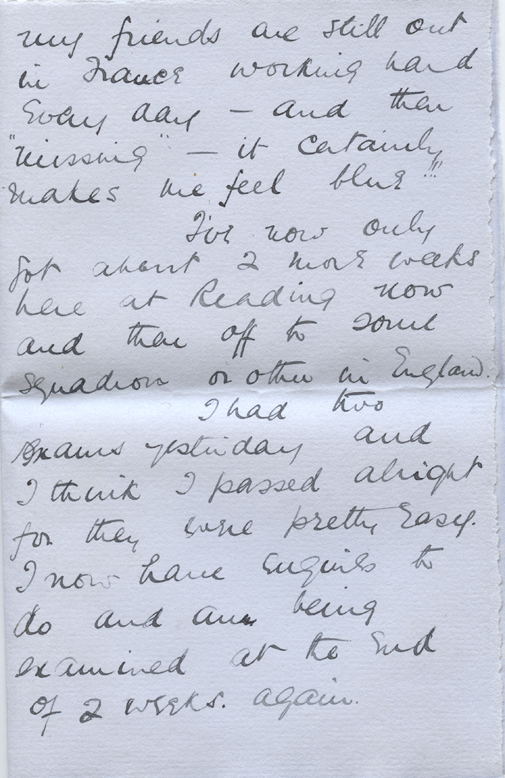 my friends are still out
in France working hard
Every day – and then
"missing" – it certainly
makes me feel blue"!!
I've now only
got about 2 more weeks
here at Reading now
and then off to some
squadron or other in England.
I had two
exams yesterday and
I think I passed alright
for they were pretty Easy.
I now have Engines to
do and am being
examined at the End
of 2 weeks. again.